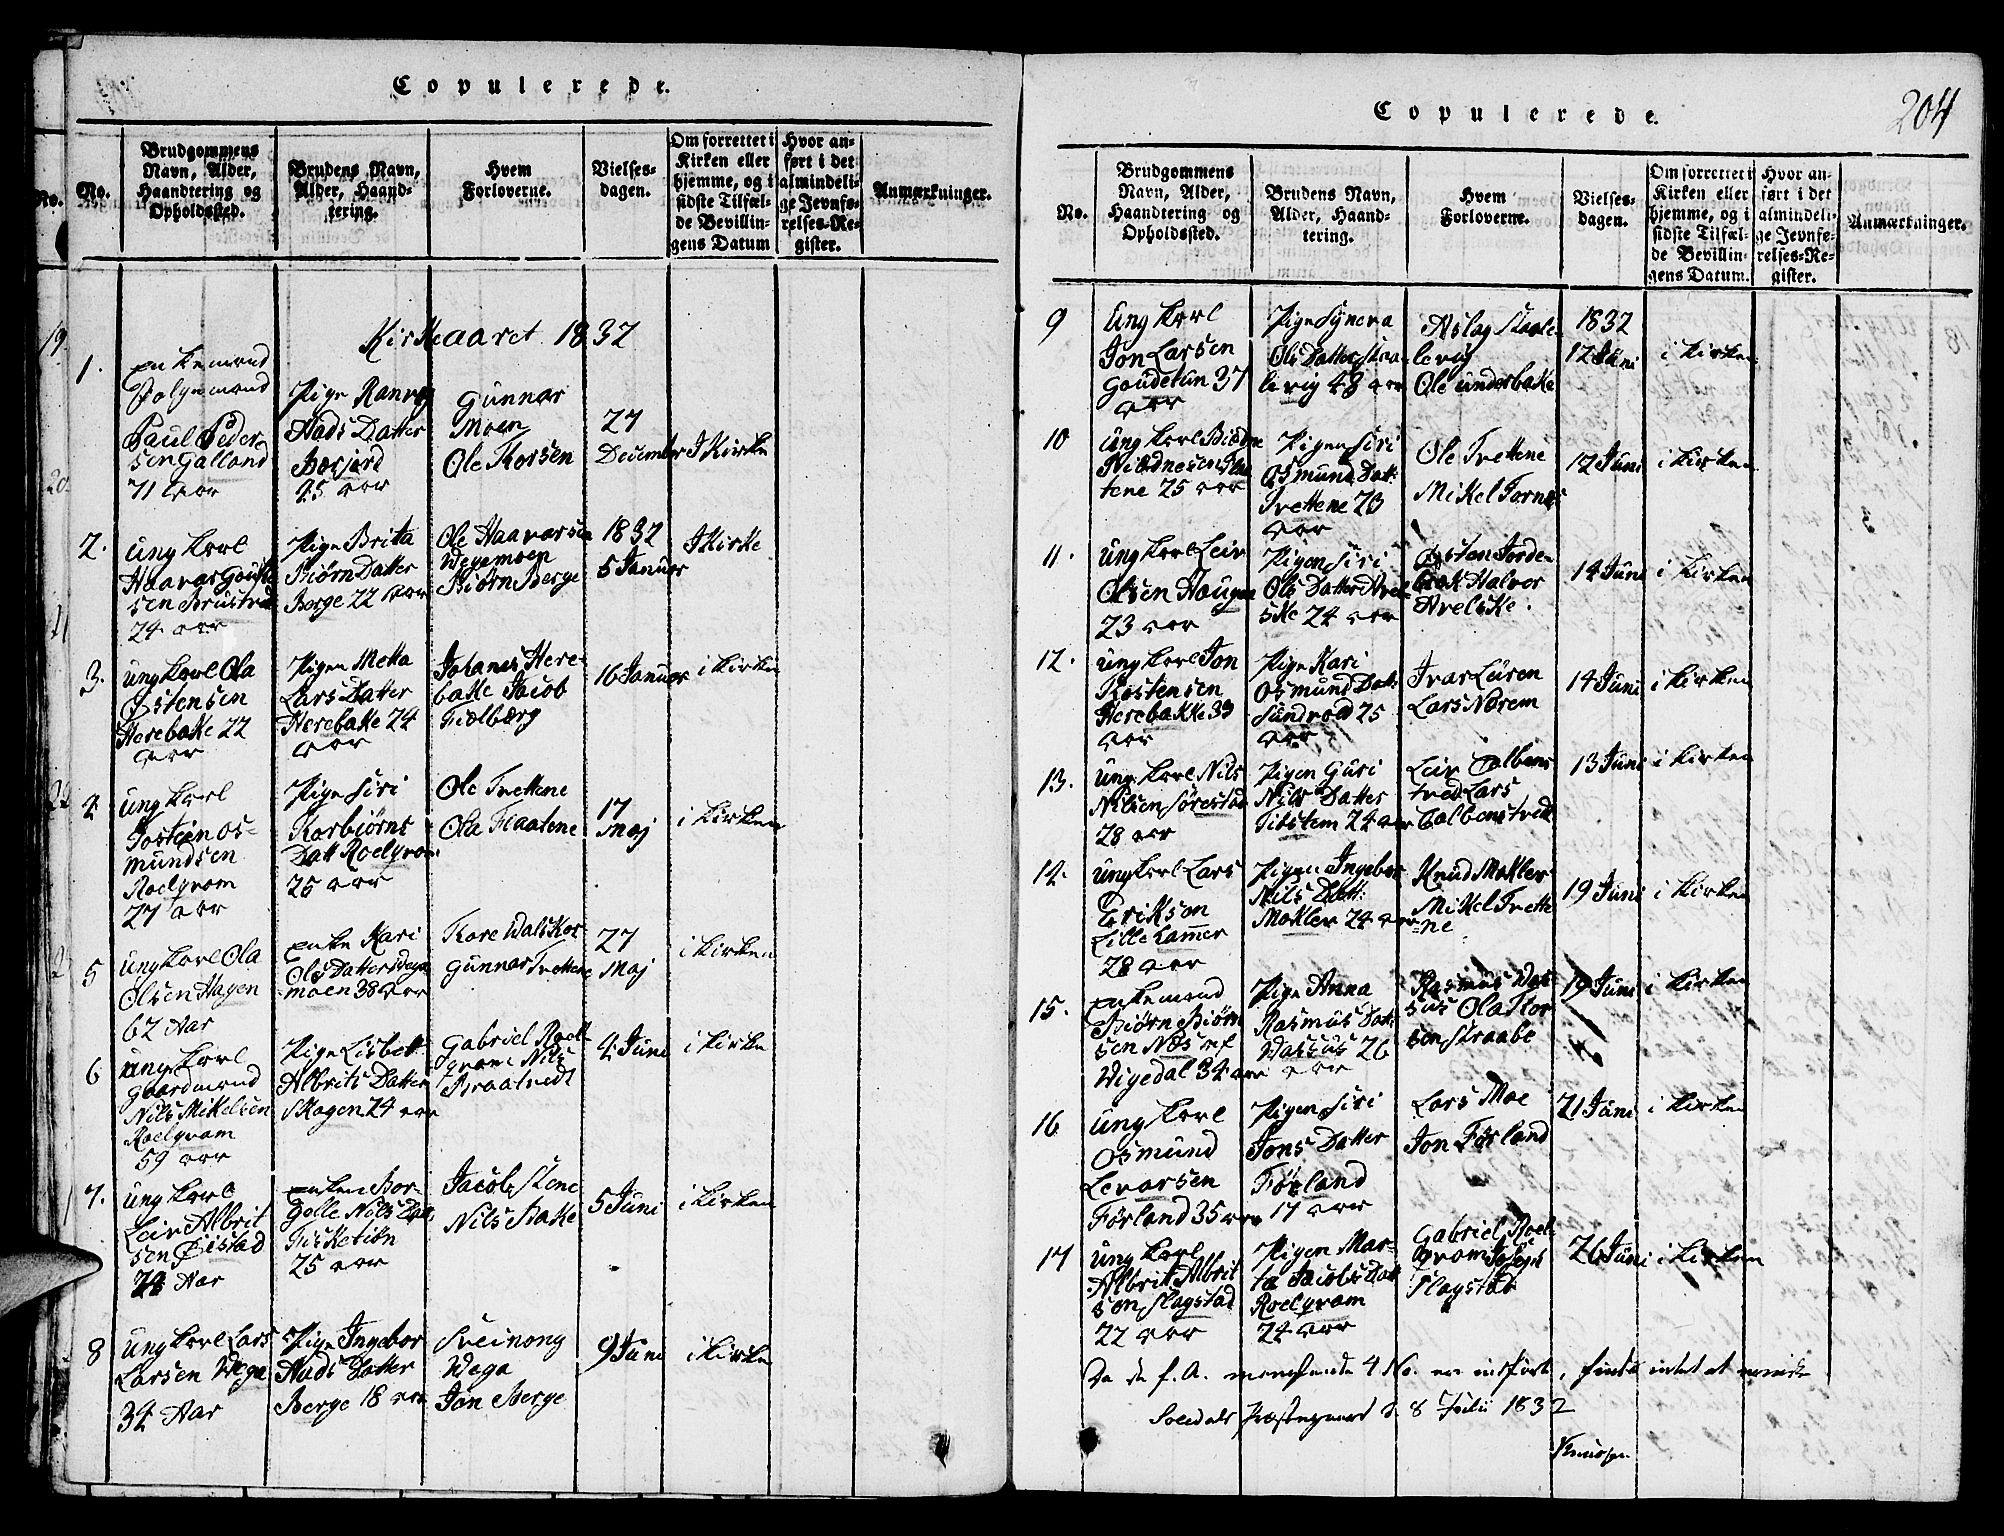 Copulerede.
No.
No.
Brudgommens
Navn, Alder,
Haandtering og
Opholdssted.
Brudens Navn,
Alder, Haand-
tering.
Hvem
Forloverne.
Vielses-
dagen.
Om forrettet i
Kirken eller
hjemme, og i
sidste Tilfæl-
de Bevillin-
gens Datum
Hvor an-
ført i det
almindeli-
ge Jevnfø-
relses-Re-
gister.
Anmærkninger.
Kirkeaaret 1832
1.
Enkemand
Paul Peder
sen Galland
71 aar
Pige Ranveg
Aads Datter
25 aar
Gunnar
Moen
Ole Torsen
27
December
I Kirke
2.
ung karl
Haavar
sen
24 aar
Pige Brita
Biørn Datter
Berge 22 aar
Ole Haavarsen
Wegemoen
Biørn Berge
1832
5 Januar
I Kirke
3.
ung karl Ola
Østensen
Herebake 22
aar
Pigen Metta
Lars Datter
Herebake 24
aar
Johanes Here-
bakke Jacob
Fiælbærg
16 Januar
i kirken
4
ung karl
Josteen os-
mundsen
Roelqvam
27 aar
Pige Siri
Torbiørns
Datt Roelqvam
25 aar
Ole Trettene
Ola Flaatene
17
maj
i kirken
5
ung karl Ola
Olsen Hagen
62 Aar
Enke Kari
Ols Datter Wege
=moen 38 aar
Tore Walskor
Gunnar Trettene
27
maj
i kirken
6
ung karl
gaardmand
Nils Mikelsen
Roelqvam
59 aar
Pige Lisbet
Albrits Datter
Skogen 24 aar
Gabriel Roel
qvam Nils
Braatvedt
4 Juni
i kirke
7.
ung karl
Leiv Albrit
sen Øistad
24 Aar
Enken Bor-
golle Nils Dat
Fisketiøn
25 aar
Jacob Stene
Nils Bake
5 Juni
i kirken
8
ung karl Lars
Larsen Wega
34 Aar
Pige Ingebor
Aads Datter
Berge 18 aar
Sveinong
Wega
Jon Berge
9 Juni
i kirke
Copulerede.
204
No.
Brudgommens
Navn, Alder,
Haandtering og
Opholdssted.
Brudens Navn,
Alder, Haand-
tering.
Hvem
Forloverne.
Vielses-
dagen.
Om forrettet i
Kirken eller
hjemme, og i
sidste Tilfæl-
de Bevillin-
gens Datum.
Hvor an-
ført i det
almindeli-
ge Jevnfø-
relses-Re-
gister.
Anmærkninger.
9
ung karl
Jon Larsen
Goudetun 37
aar
Pige Syneva
Ols Datter Stra-
levig 48 aar
Aslag Straale
levig
Ole underbake
1832
12 Juni
i kirken
10
ung karl
tene 25 aar
Pigen Siri
Osmund Dat:
Trettene 23
aar
Ole Trettene
Mikel Tornes
12 Juni
i kirken
11.
ung karl Leiv
Olsen Haugen
23 aar
Pigen Siri
Ols Datter Hvel
ske 24 aar
Østen Jorde-
bræk Halvor
Hvelske.
14 Juni
i kirken
12.
ung karl Jon
Tostensen
Herebakke 39
aar
Pige Kari
Osmund Dat:
Sundvod 25
aar
Ivar Luren
Lars Nærem
14 Juni
i kirken
13.
ung karl Nils
Nilsen Sørestad
28 aar
Pigen Guri
Nils Datter
Tiøstem 24 aar
Leiv
tved Lars
13 Juni
i kirken
14.
ung karl Lars
Erikson
Lille Lamer
28 aar
Pigen Ingebor
Nils Datt:
Mokler 24 aar
Knud Mokler
Mikel Trette
=ne
19 Juni
i kirken
15.
Enkemand
Biørn Biørn
sen Næs af
Wigedal 34 aar
Pige Anna
Rasmus Dat:
Wassus 26
aar
Rasmus Was
sus Ola Tor
sen Straabe
19 Juni
i kirken
16
ung karl
Osmund
Levarsen
Førland 35 aar
Pigen Siri
Jons Datter
Førland
17 aar
Lars Moe
Jon Førland
21 Juni
i kirken
17
ung karl
Albrit Albrit
sen Slagstad
22 aar
Pigen Mar-
ta Jacobs Dat
Roelqvam
24 aar
Gabriel Roel
qvam Joseph
Slagstad
26 Juni
i kirken
Da de f. A. 4 No. er indført, findes intet at
Soledals Præstegaard d. 8 Julii 1832